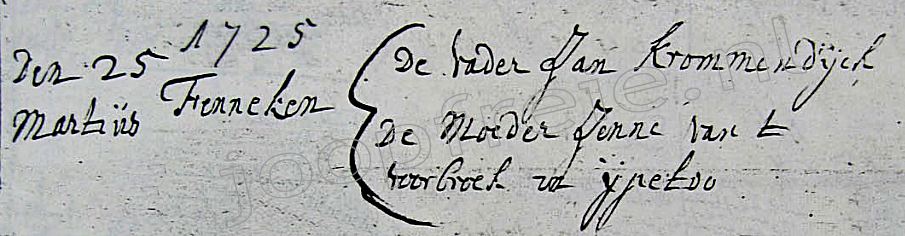 1725
Den 25
Martiüs Fenneken
De vader Jan Krommendijck
De Moeder Jenne van t
voorbroek ut ÿpeloo
joopfreie.nl